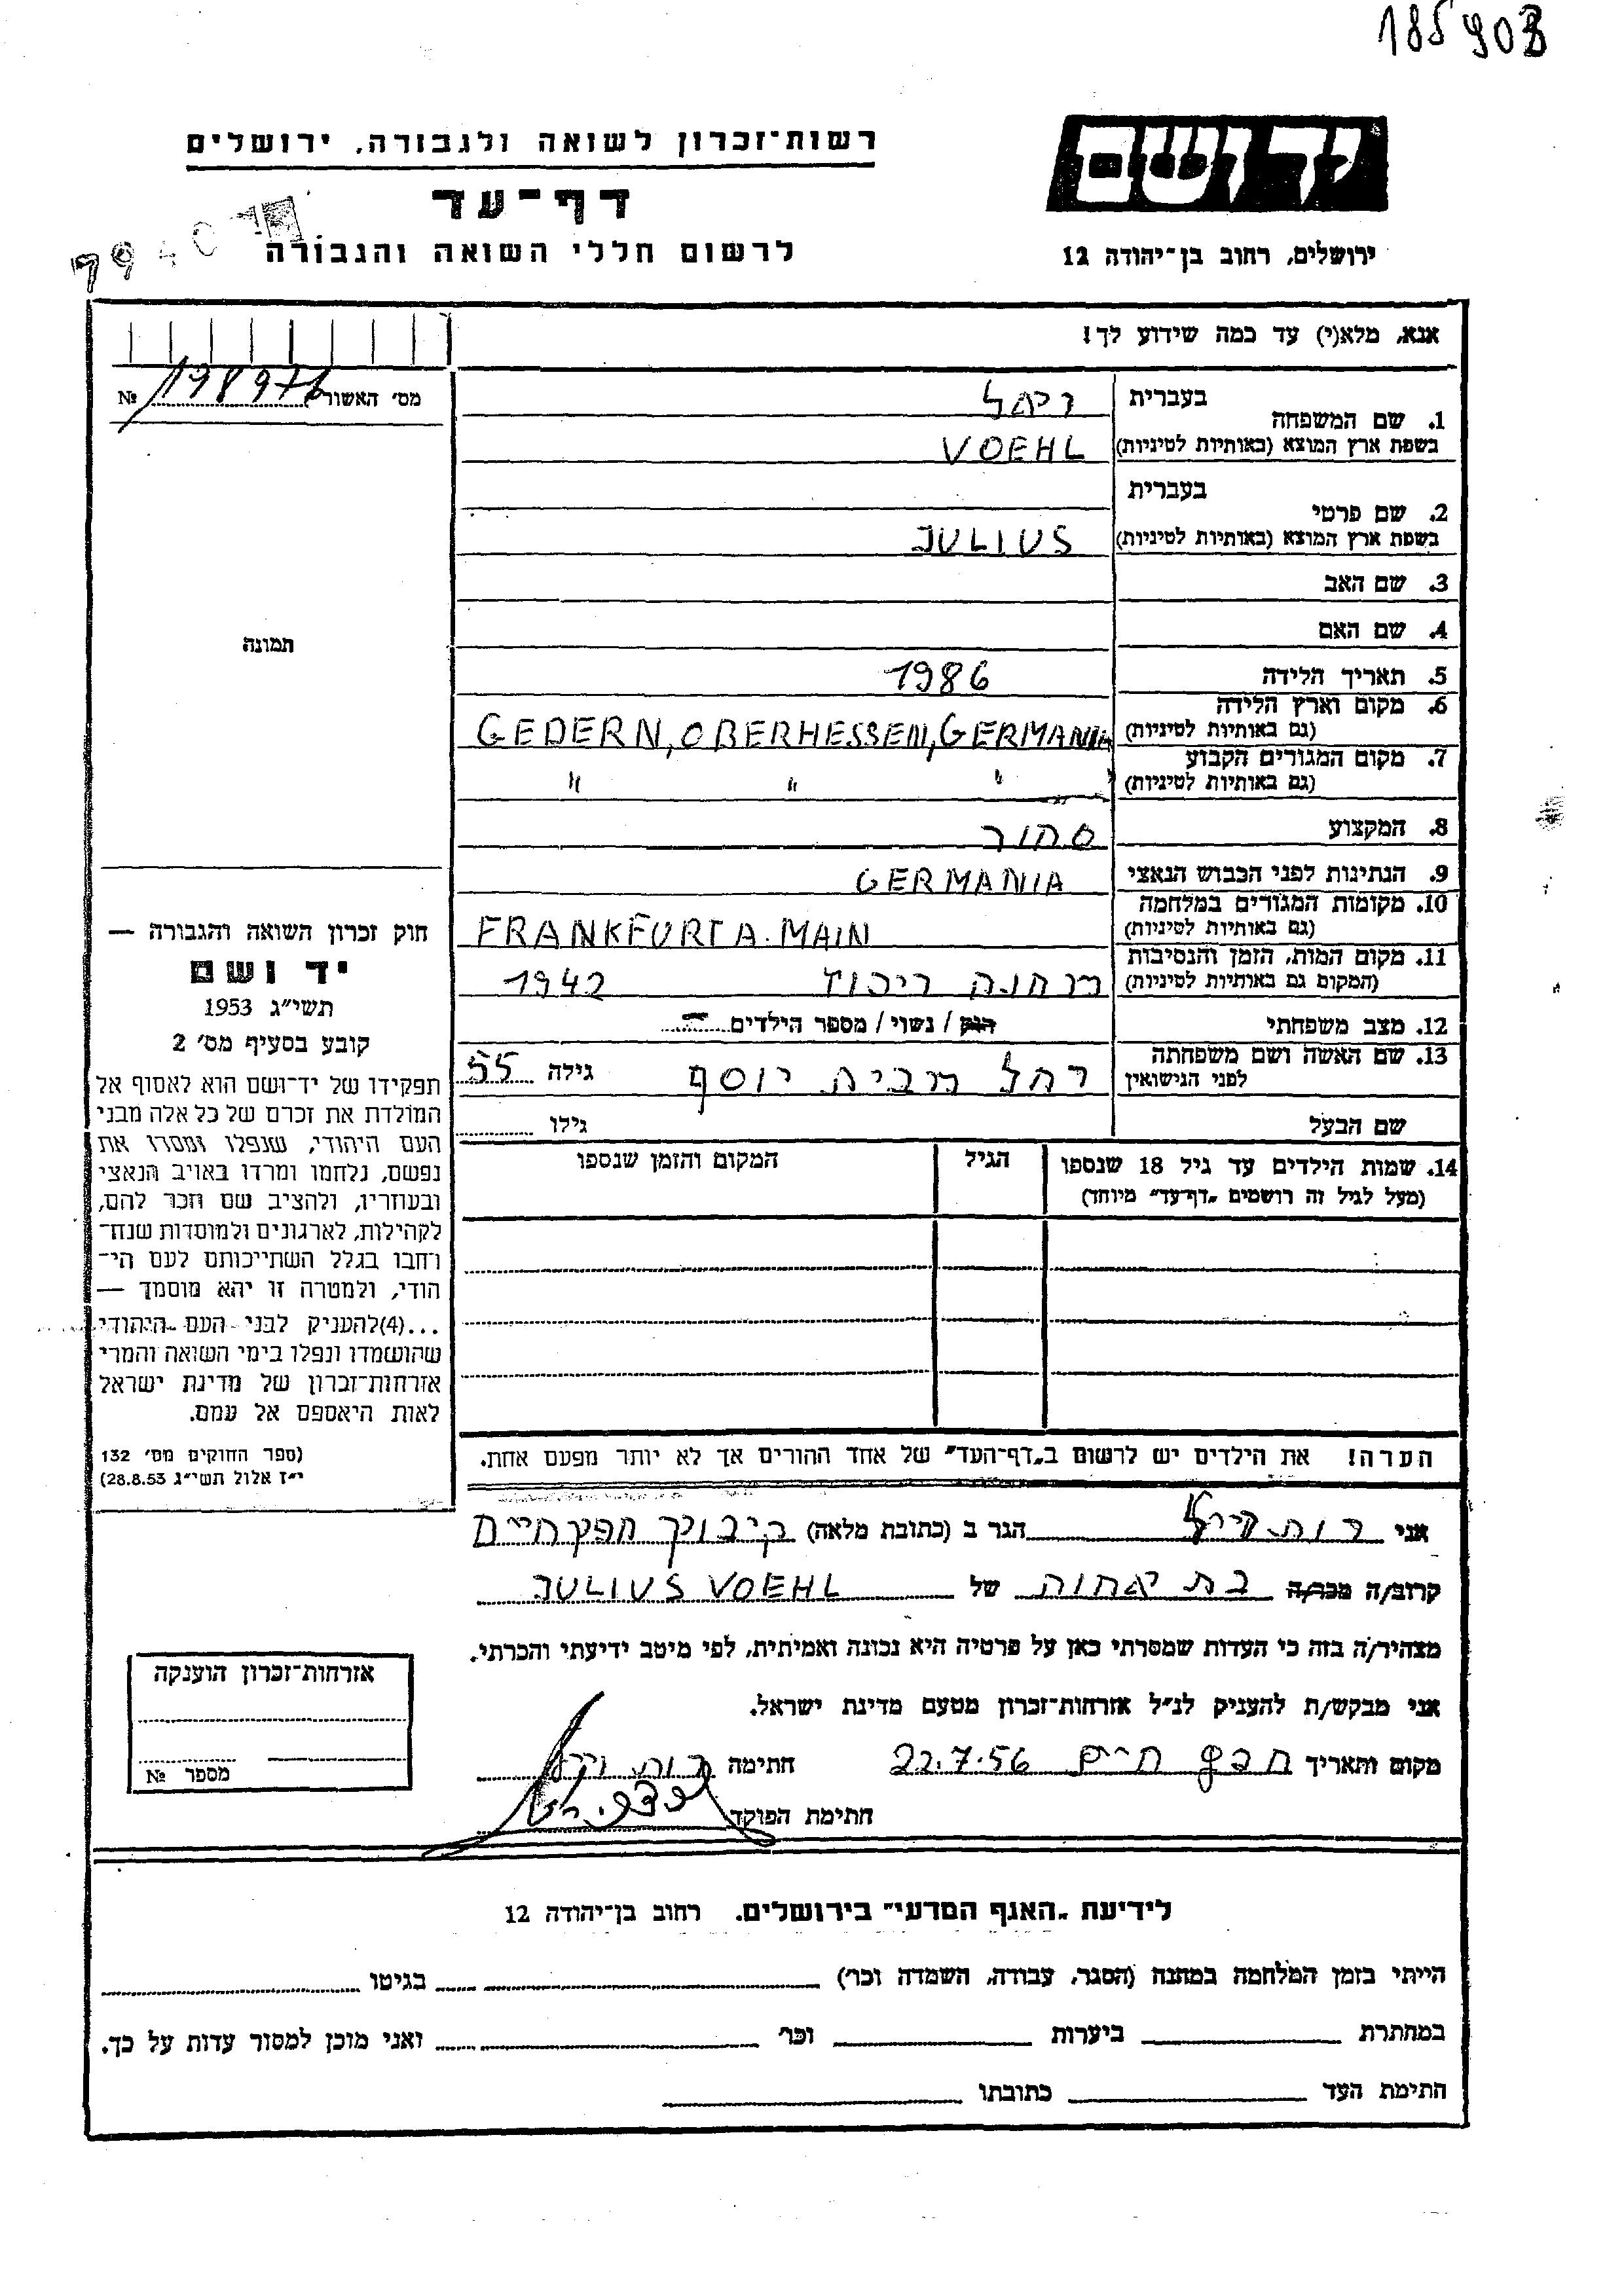 185903
יד ושם
רשות־זכרון לשואה ולגבורה, ירושלים
דף־עד
לרשום חללי השואה והגבורה
ירושלים, רחוב בן־יהודה 12
אנא, מלא(י) עד כמה שידוע לך!
מס׳ האשור 198976 №
תמונה
בעברית
1. שם המשפחה
בשפת ארץ המוצא (באותיות לטיניות) VOEHL
בעברית
2. שם פרטי
בשפת ארץ המוצא (באותיות לטיניות) JULIUS
3. שם האב
4. שם האם
5. תאריך הלידה 1986
6. מקום וארץ הלידה
(גם באותיות לטיניות) GEDERN, OBERHESSEN, GERMANIA
7. מקום המגורים הקבוע
(גם באותיות לטיניות) " " "
8. המקצוע סהור
9. הנתינות לפני הכבוש הנאצי GERMANIA
10. מקומות המגורים במלחמה
(גם באותיות לטיניות) FRANKFURT A. MAIN
11. מקום המות, הזמן והנסיבות
(המקום גם באותיות לטיניות) מחנה ריכוז 1942
12. מצב משפחתי רווק / נשוי / מספר הילדים
13. שם האשה ושם משפחתה
לפני הנישואין רחל מבית יוסף גילה 55
שם הבעל גילו
14. שמות הילדים עד גיל 18 שנספו הגיל המקום והזמן שנספו
(מעל לגיל זה רושמים „דף־עד״ מיוחד)
הערה! את הילדים יש לרשום ב„דף־העד״ של אחד ההורים אך לא יותר מפעם אחת.
חוק זכרון השואה והגבורה —
יד ושם
תשי״ג 1953
קובע בסעיף מס׳ 2
תפקידו של יד־ושם הוא לאסוף אל
המולדת את זכרם של כל אלה מבני
העם היהודי, שנפלו ומסרו את
נפשם, נלחמו ומרדו באויב הנאצי
ובעוזריו, ולהציב שם וזכר להם,
לקהילות, לארגונים ולמוסדות שנח־
רחבו בגלל השתייכותם לעם הי־
הודי, ולמטרה זו יהא מוסמך —
...(4)להעניק לבני העם היהודי
שהושמדו ונפלו בימי השואה והמרי
אזרחות־זכרון של מדינת ישראל
לאות היאספם אל עמם.
(ספר החוקים מס׳ 132
י״ז אלול תשי״ג 28.8.53)
אני רות הגר ב (כתובת מלאה) קיבוץ חפץ חיים
קרוב/ה מכר/ה בת אחות של JULIUS VOEHL
מצהיר/ה בזה כי העדות שמסרתי כאן על פרטיה היא נכונה ואמיתית, לפי מיטב ידיעתי והכרתי.
אני מבקש/ת להעניק לנ״ל אזרחות־זכרון מטעם מדינת ישראל.
מקום ותאריך חפץ חיים 22.7.56 חתימה רות
חתימת הפוקד
אזרחות־זכרון הוענקה
מספר №
לידיעת „האגף המדעי״ בירושלים. רחוב בן־יהודה 12
הייתי בזמן המלחמה במחנה (הסגר, עבודה, השמדה וכו׳) בגיטו
במחתרת ביערות וכו׳ ואני מוכן למסור עדות על כך.
חתימת העד כתובתו